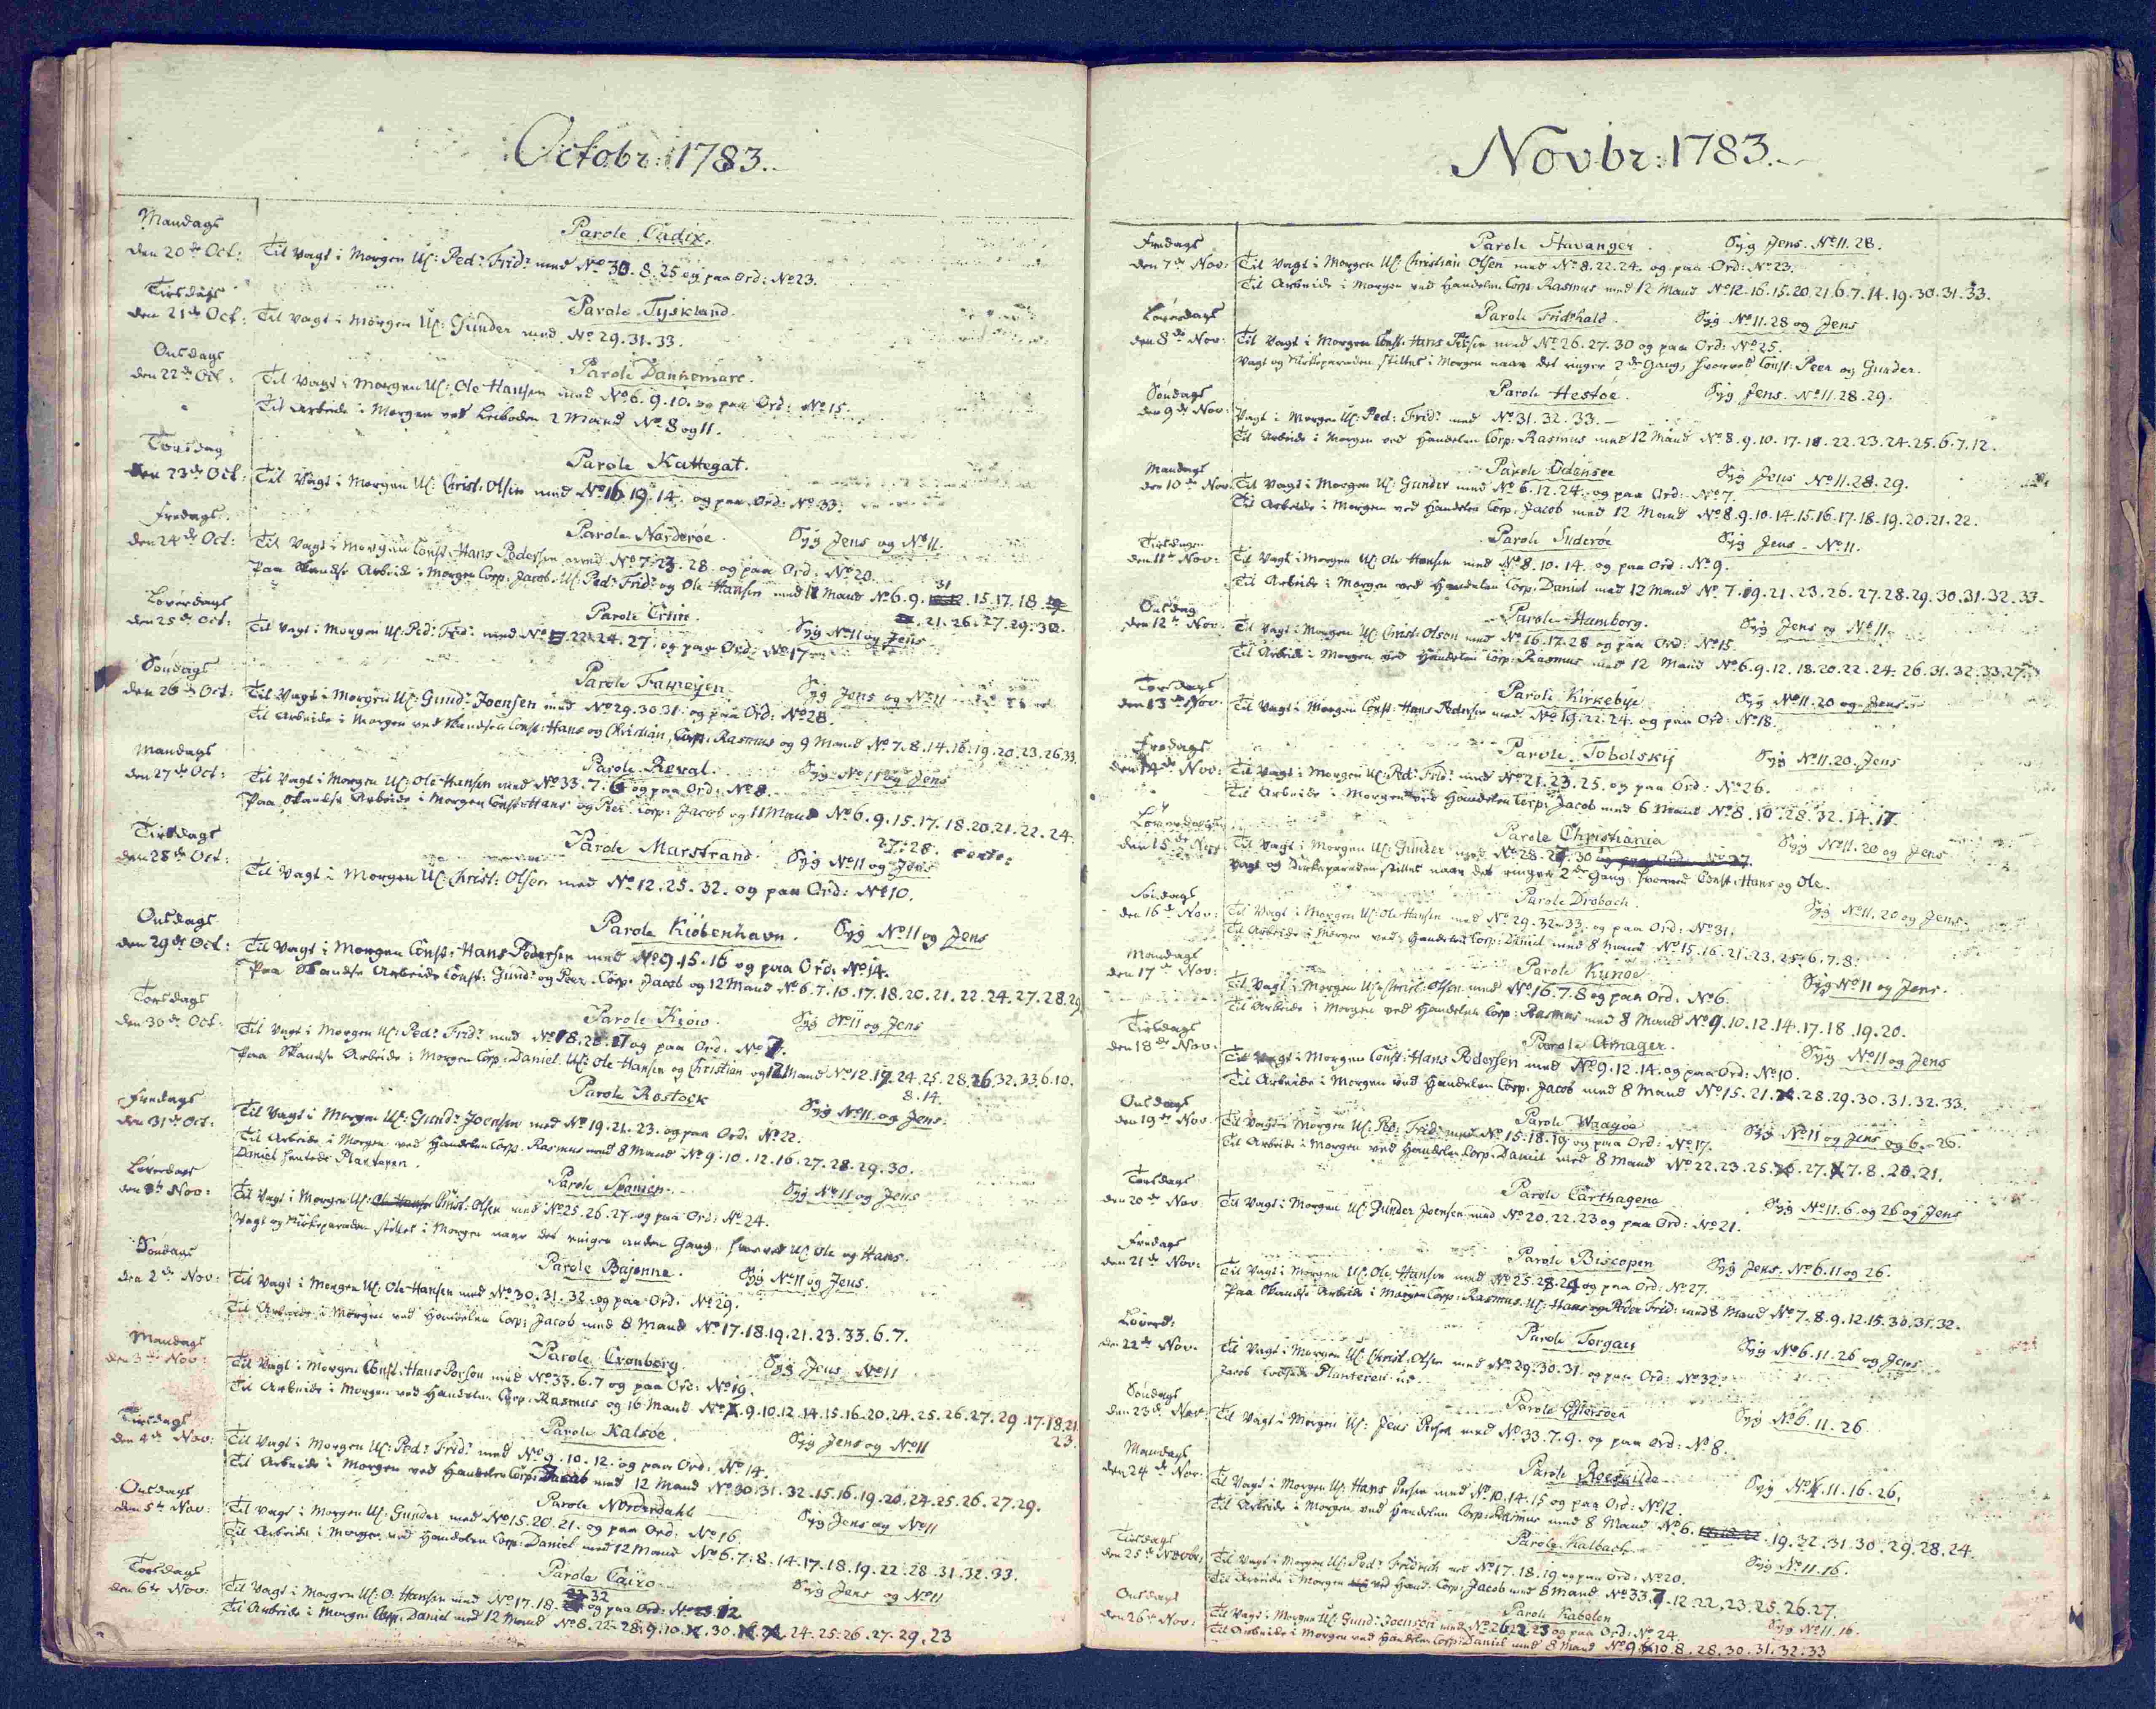 Octobr: 1783.
Mandags
den 20de Oct:
Parole Cadix.
Til Vagt i Morgen U: Pedr Fridr med No 30. 8. 25 og paa Ord: No 23.
Tirsdags
den 21de Oct:
Parole Tyskland.
Til Vagt i Morgen U: Gunder med No 29. 31. 33.
Onsdags
den 22de Oct:
Parole Dannemarc.
Til Vagt i Morgen U: Ole Hansen med No 6. 9. 10. og paa Ord: No 15.
Til Arbeide i Morgen ved 2 Mand No 8 og 11.
Torsdag
den 23de Oct:
Parole Kattegat.
Til Vagt i Morgen U: Christ: Olsen med No 16. 19. 14. og paa Ord: No 33.
Fredags
den 24de Oct:
Parole Norderøe. Syg Jens og No 11.
Til Vagt i Morgen Const: Hans Pedersen med No 7. 23. 28. og paa Ord: No 20.
Paa Skandse Arbeide i Morgen Corp: Jacob. U: Pedr Fridr og Ole Hansen med 12 Mand No 6. 9. 31. 15. 17. 18.
21. 26. 27. 29. 30.
Løverdags
den 25de Oct:
Parole Crim. Syg No 11 og Jens
Til Vagt i Morgen U: Pedr Fridr med No 22. 24. 27. og paa Ord: No 17
Søndags
den 26de Oct:
Parole Syg Jens og No 11
Til Vagt i Morgen U: Gundr Joensen med No 29. 30. 31. og paa Ord: No 28.
Til Arbeide i Morgen ved Skandsen Const: Hans og Christian, Corp: Rasmus og 9 Mand No 7. 8. 14. 16. 19. 20. 23. 26. 33.
Mandags
den 27de Oct:
Parole Reval. Syg No 11 og Jens
Til Vagt i Morgen U: Ole Hansen med No 33. 7. 6 og paa Ord: No 8.
Paa Skandse Arbeide i Morgen Const: Hans og Peer. Corp: Jacob og 11 Mand No 6. 9. 15. 17. 18. 20. 21. 22. 24.
27. 28.
Tirsdags
den 28de Oct:
Parole Marstrand. Syg No 11 og Jens
Til Vagt i Morgen U: Christ: Olsen med No 12. 25. 32. og paa Ord: No 10.
Onsdags
den 29de Oct:
Parole Kiöbenhavn. Syg No 11 og Jens
Til Vagt i Morgen Const: Hans Pedersen med No 9. 15. 16 og paa Ord: No 14.
Paa Skandse Arbeide Const: Gundr og Peer. Corp: Jacob og 12 Mand No 6. 7. 10. 17. 18. 20. 21. 22. 24. 27. 28. 29
Torsdags
den 30de Oct:
Parole Kiow. Syg No 11 og Jens
Til Vagt i Morgen U: Pedr Fridr med No 18. og paa Ord: No 7.
Paa Skandse Arbeide i Morgen Corp: Daniel. U: Ole Hansen og Christian og 12 Mand No 12. 19. 24. 25. 28. 26. 32. 33. 6. 10.
8. 14.
Fredags
den 31de Oct:
Parole Rostock Syg No 11 og Jens.
Til Vagt i Morgen U: Gundr Joensen med No 19. 21. 23. og paa Ord: No 22.
Til Arbeide i Morgen ved Handelen Corp: Rasmus med 8 Mand No 9. 10. 12. 16. 27. 28. 29. 30.
Daniel hentede Plantaren.
Løverdags
den Nov:
Parole Spanien. Syg No 11 og Jens
Til Vagt i Morgen U: Christ: Olsen med No 25. 26. 27. og paa Ord: No 24.
Vagt og Kirkeparaden stilles i Morgen naar det ringer anden Gang, hvorved U: Ole og Hans.
Søndags
den 2de Nov:
Parole Bajonne. Syg No 11 og Jens.
Til Vagt i Morgen U: Ole Hansen med No 30. 31. 32. og paa Ord: No 29.
Til Arbeide i Morgen ved Handelen Corp: Jacob med 8 Mand No 17. 18. 19. 21. 23. 33. 6. 7.
Mandags
den 3die Nov:
Parole Cronborg. Syg Jens. No 11
Til Vagt i Morgen Const: Hans Persen med No 33. 6. 7 og paa Ord: No 19.
Til Arbeide i Morgen ved Handelen Corp: Rasmus og 16 Mand No 9. 10. 12. 14. 15. 16. 20. 24. 25. 26. 27. 29. 17. 18. 21.
23.
Tirsdags
den 4de Nov:
Parole Kalsöe. Syg Jens og No 11
Til Vagt i Morgen U: Pedr Fridr med No 9. 10. 12. og paa Ord: No 14.
Til Arbeide i Morgen ved Handelen Corp: Jacob med 12 Mand No 30. 31. 32. 15. 16. 19. 20. 24. 25. 26. 27. 29.
Onsdags
den 5te Nov:
Parole Norderdahl Syg Jens og No 11
Til Vagt i Morgen U: Gunder med No 15. 20. 21. og paa Ord: No 16.
Til Arbeide i Morgen ved Handelen Corp: Daniel med 12 Mand No 6. 7. 8. 14. 17. 18. 19. 22. 28. 31. 32. 33.
Torsdags
den 6te Nov:
Parole Cairo Syg Jens og No 11
Til Vagt i Morgen U: O. Hansen med No 17. 18. 32 og paa Ord: No 12
Til Arbeide i Morgen Corp. Daniel med 12 Mand No 8. 22. 28. 9. 10. 30. 24. 25. 26. 27. 29. 23
Novbr: 1783.
Fredags
den 7de Nov:
Parole Stavanger. Syg Jens. No 11. 28.
Til Vagt i Morgen U: Christian Olsen med No 8. 22. 24. og paa Ord: No 23.
Til Arbeide i Morgen ved Handelen Corp. Rasmus med 12 Mand No 12. 16. 15. 20. 21. 6. 7. 14. 19. 30. 31. 33.
Løverdags
den 8de Nov:
Parole Fridrhald. Syg No 11. 28 og Jens
Til Vagt i Morgen Const. Hans Persen med No 26. 27. 30 og paa Ord: No 25.
Vagt og Kirkeparaden stilles i Morgen naar det ringer 2de Gang, hvorved Const: Peer og Gunder.
Søndags
den 9de Nov:
Parole Hestöe. Syg Jens. No 11. 28. 29.
Vagt i Morgen U: Ped: Fridr med No 31. 32. 33.
Til Arbeide i Morgen ved Handelen Corp: Rasmus med 12 Mand No 8. 9. 10. 17. 18. 22. 23. 24. 25. 6. 7. 12.
Mandags
den 10de Nov:
Parole Odensee Syg Jens No 11. 28. 29.
Til Vagt i Morgen U: Gunder med No 6. 12. 24. og paa Ord: No 7.
Til Arbeide i Morgen ved Handelen Corp. Jacob med 12 Mand No 8. 9. 10. 14. 15. 16. 17. 18. 19. 20. 21. 22.
Tirsdagen
den 11te Nov:
Parole Suderöe Syg Jens. No 11.
Til Vagt i Morgen U: Ole Hansen med No 8. 10. 14. og paa Ord: No 9.
Til Arbeide i Morgen ved Handelen Corp. Daniel med 12 Mand No 7. 19. 21. 23. 26. 27. 28. 29. 30. 31. 32. 33.
Onsdag
den 12te Nov:
Parole Hamborg. Syg Jens og No 11
Til Vagt i Morgen U: Christ: Olsen med No 16. 17. 28 og paa Ord: No 15.
Til Arbeide i Morgen ved Handelen Corp: Rasmus med 12 Mand No 6. 9. 12. 18. 20. 22. 24. 26. 31. 32. 33. 27.
Torsdags
den 13de Nov:
Parole Kirkebye Syg No 11. 20 og Jens
Til Vagt i Morgen Const: Hans Pedersen med No 19. 22. 24. og paa Ord: No 18.
Fredags
den 14de Nov:
Parole Tobolsky Syg No 11. 20. Jens
Til Vagt i Morgen U: Pedr Fridr med No 21. 23. 25. og paa Ord: No 26.
Til Arbeide i Morgen ved Handelen Corp: Jacob med 6 Mand No 8. 10. 28. 32. 14. 17.
Løverdagen
den 15de Nov
Parole Christiania Syg No 11. 20 og Jens
Til Vagt i Morgen U: Gunder med No 28. 27. 30 og paa Ord: No 27.
Vagt og Kirkeparaden stilles naar det ringer 2de Gang hvorved Const: Hans og Ole.
Søndags
den 16de Nov:
Parole Drobach. Syg No 11. 20 og Jens.
Til Vagt i Morgen U: Ole Hansen med No 29. 32. 33. og paa Ord: No 31.
Til Arbeide i Morgen ved Handelen Corp: Daniel med 8 Mand No 15. 16. 21. 23. 25. 6. 7. 8.
Mandags
den 17de Nov:
Parole Kunöe Syg No 11 og Jens.
Til Vagt i Morgen U: Christ: Olsen med No 16. 7. 8 og paa Ord. No 6.
Til Arbeide i Morgen ved Handelen Corp: Rasmus med 8 Mand No 9. 10. 12. 14. 17. 18. 19. 20.
Tirsdags
den 18de Nov:
Parole Amager. Syg No 11 og Jens
Til Vagt i Morgen Const: Hans Pedersen med No 9. 12. 14. og paa Ord: No 10.
Til Arbeide i Morgen ved Handelen Corp. Jacob med 8 Mand No 15. 21. 28. 29. 30. 31. 32. 33.
Onsdags
den 19de Nov
Parole Waagöe Syg No 11 og Jens og 6. 26.
Til Vagt i Morgen U: Ped: Fridr med No 15. 18. 19 og paa Ord: No 17.
Til Arbeide i Morgen ved Handelen Corp. Daniel med 8 Mand No 22. 23. 25. 27. 7. 8. 20. 21.
Torsdags
den 20de Nov
Parole Carthagena Syg No 11. 6. og 26 og Jens
Til Vagt i Morgen U: Gunder Joensen med No 20. 22. 23 og paa Ord: No 21.
Fredags
den 21de Nov:
Parole Biscopen Syg Jens. No 6. 11 og 26.
Til Vagt i Morgen U: Ole Hansen med No 25. 28. 24 og paa Ord: No 27.
Paa Skandse Arbeide i Morgen Corp: Rasmus. U: Hans og Peder Frid: med 8 Mand No 7. 8. 9. 12. 15. 30. 31. 32.
Løverd:
den 22de Nov.
Parole Torgau Syg No 6. 11. 26 og Jens
Til Vagt i Morgen U: Christ. Olsen med No 29. 30. 31. og paa Ord: No 32.
Jacob Planteren ud.
Søndags
den 23de Nov:
Parole Syg No 6. 11. 26
Til Vagt i Morgen U: Jens Persen med No 33. 7. 9. og paa Ord: No 8.
Mandags
den 24de Nov
Parole Roeskilde Syg No 11. 16. 26.
Til Vagt i Morgen U: Hans Persen med No 10. 14. 15 og paa Ord: No 12.
Til Arbeide i Morgen ved Handelen Corp: Rasmus med 8 Mand No 6. 19. 32. 31. 30. 29. 28. 24.
Tirsdags
den 25de Novbr:
Parole Kalbach Syg No 11. 16.
Til Vagt i Morgen U: Pedr Fridrich med No 17. 18. 19 og paa Ord: No 20.
Til Arbeide i Morgen ved Hand: Corp: Jacob med 8 Mand No 33. 7. 12. 22. 23. 25. 26. 27.
Onsdags
den 26de Nov:
Parole Kabelen Syg No 11. 16.
Til Vagt i Morgen U: Gundr Joensen med No 21. 22. 23 og paa Ord: No 24.
Til Arbeide i Morgen ved Handelen Corp: Daniel med 8 Mand No 9. 10. 8. 28. 30. 31. 32. 33